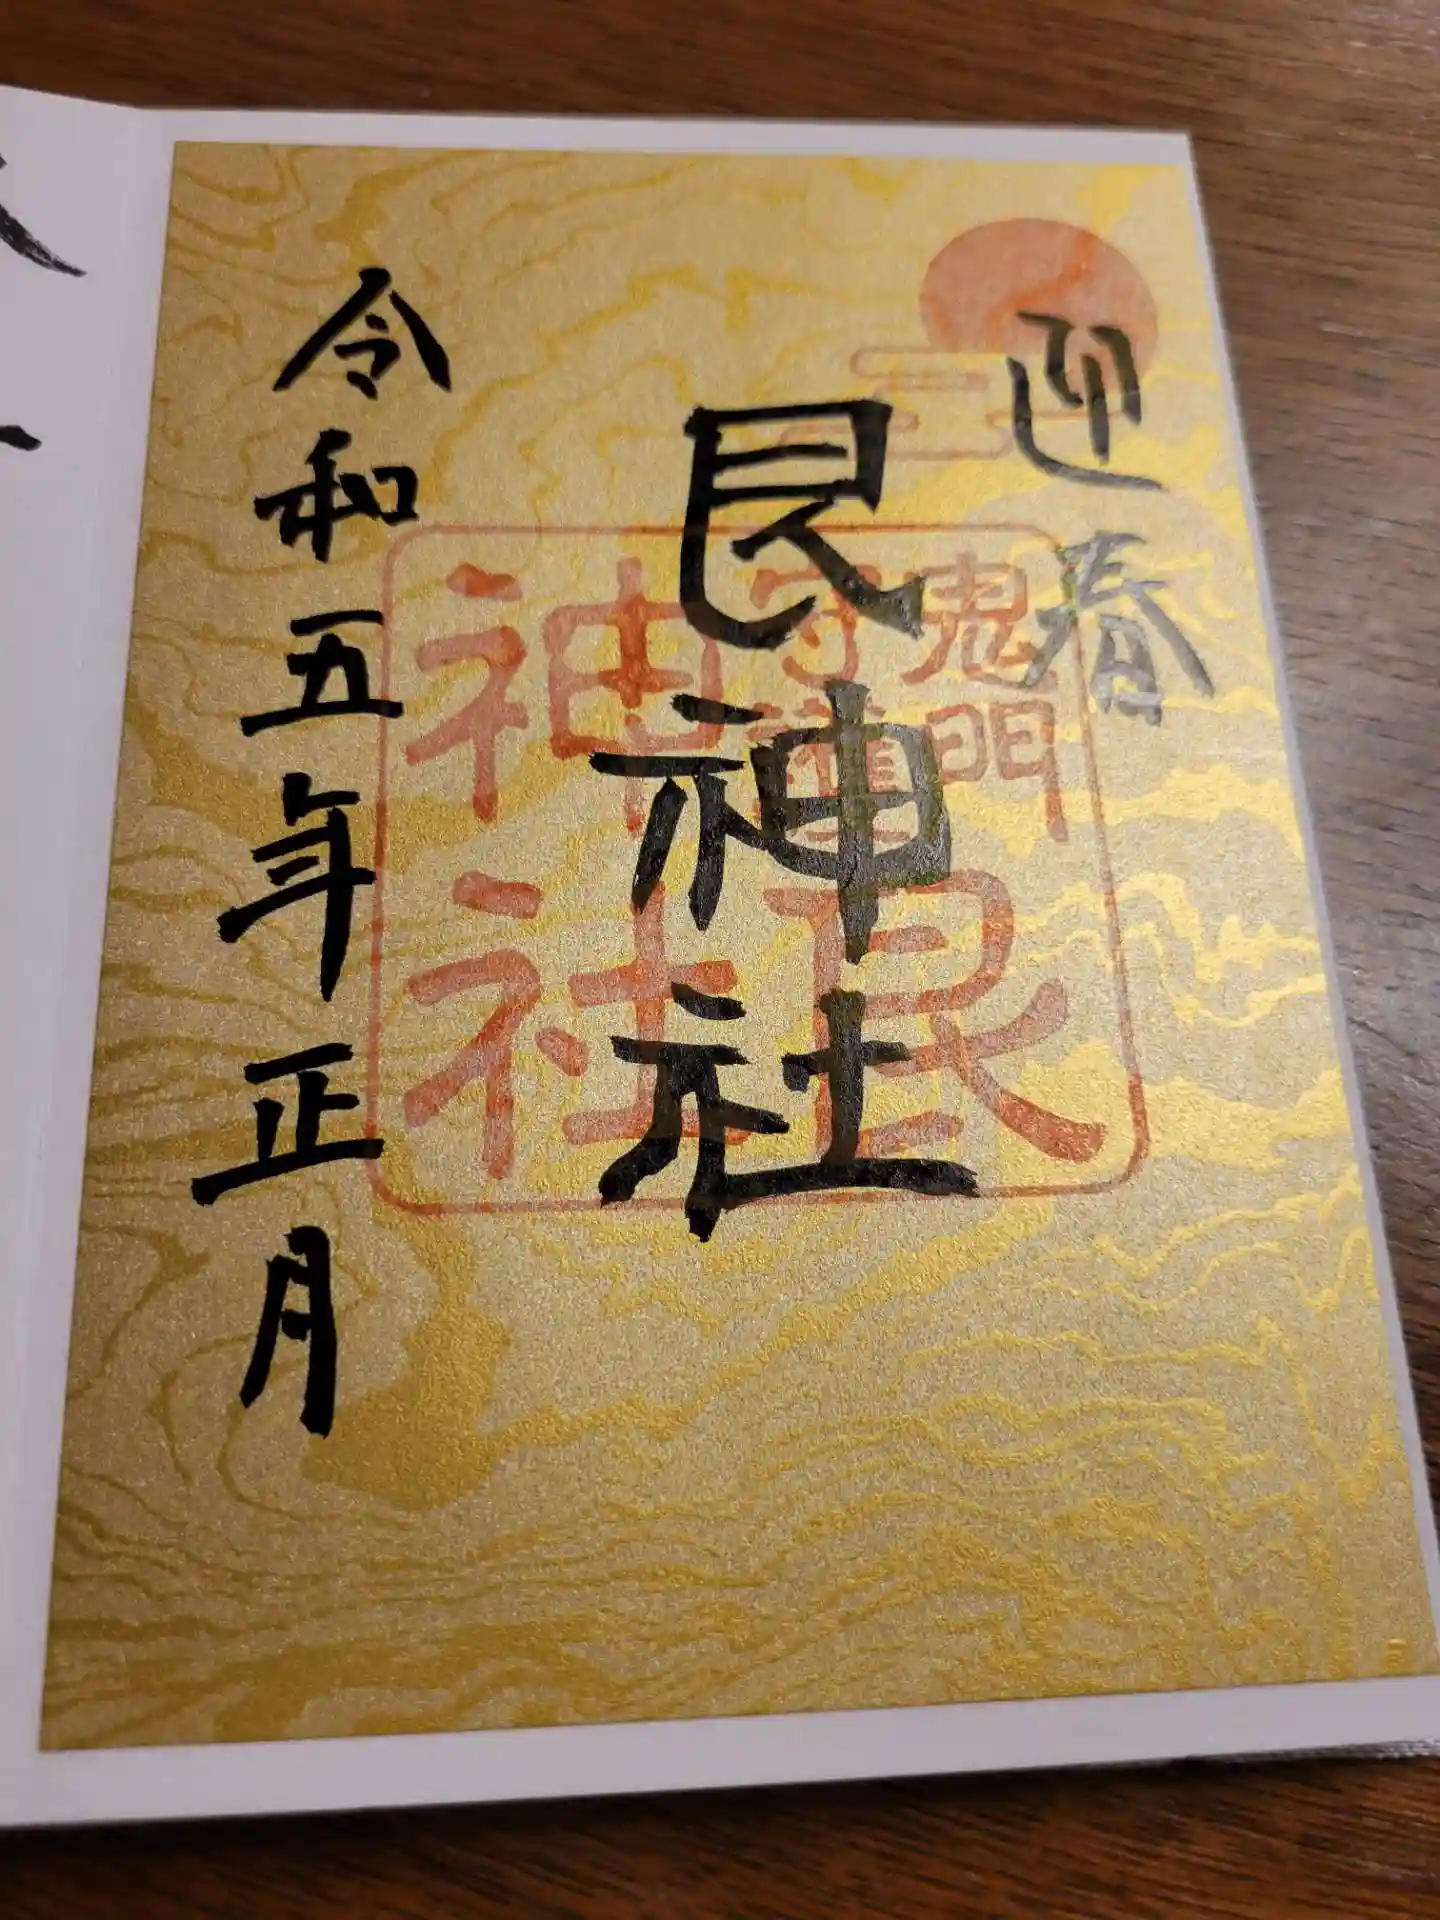 迎春
艮神社
令和五年正月
鬼門
守護
艮
神社